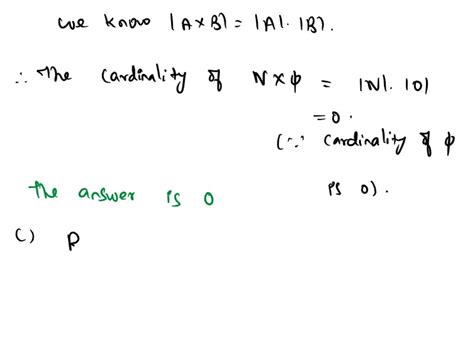 we know |A×B| = |A|. |B|.
∴ The cardinality of N×ϕ = |N|. |0|
= 0.
(∵ cardinality of ϕ
is 0).
The answer is 0
C) P